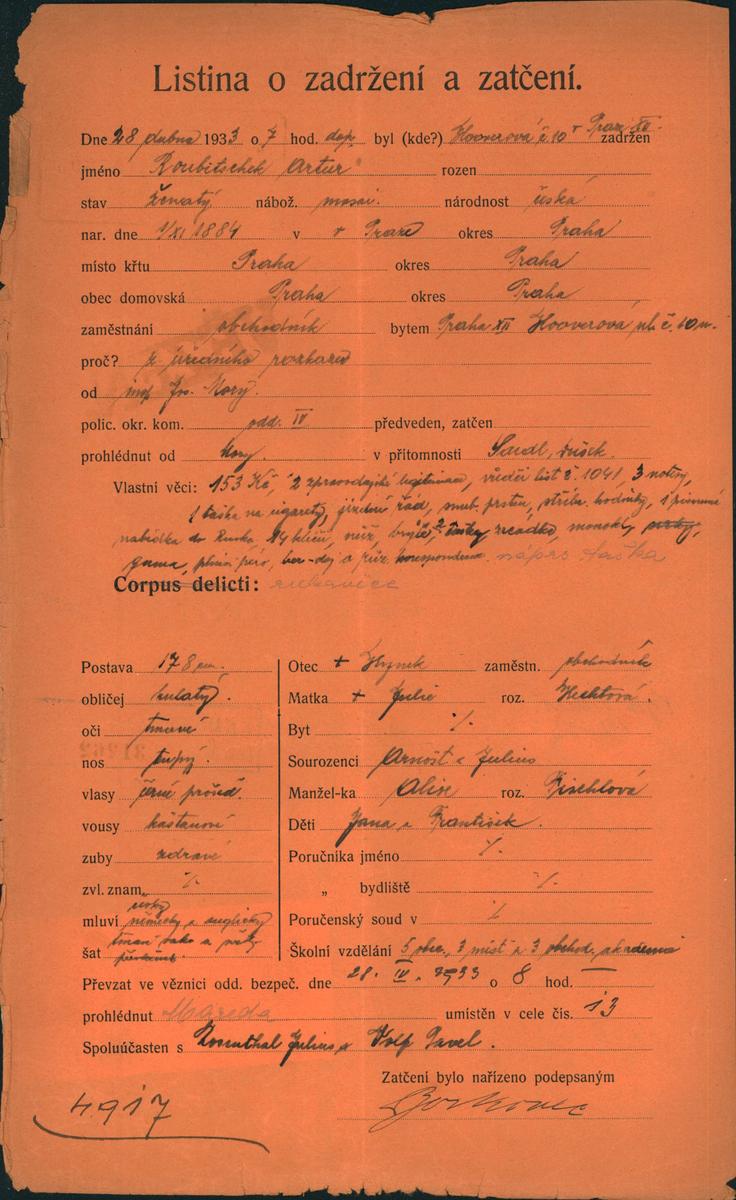 Listina o zadržení a zatčení.
Dne 28 dubna 1933 o 7 hod. dop. byl (kde?) Hooverová č 10 v Praze XII. zadržen
jméno Roubitschek Artur rozen
stav ženatý nábož. mosai. národnost česká
nar. dne 1/XI 1884 v v Praze okres Praha
místo křtu Praha okres Praha
obec domovská Praha okres Praha
zaměstnání obchodník bytem Praha XII Hooverová ul. č. 10
proč? z úředního rozkazu
od insp. Jos. Morý.
polic. okr. kom. odd. IV předveden, zatčen
prohlédnut od Morý. v přítomnosti Saidl, Dušek.
Vlastní věci: 153 Kč, 2 zpravodajské legitimace, vůdčí list č. 1041, 3 notesy,
1 taška na cigarety, jízdní řád, snub. prsten, stříbr. hodinky, 1 písemná
nabídka do Ruska 14 klíčů, nůž, brýle, 2 zrcádko, monokl,
guma, plnicí péro, a růz. korespondence. náprs taška
Corpus delicti: rukavice
Postava 178 cm. Otec + Hynek zaměstn. obchodník
obličej kulatý. Matka + Julie roz. Hechtová.
oči tmavé Byt ./.
nos tupý. Sourozenci Arnošt a Julius
vlasy černé prořid. Manžel-ka Alice roz. Fischlová
vousy kaštanové Děti Jana a František.
zuby zdravé Poručníka jméno ./.
zvl. znam. ./. „ bydliště ./.
mluví česky německy a anglicky Poručenský soud v ./.
šat tmavé sako a Školní vzdělání 5 obec, 3 měst a 3 obchod. akademie
Převzat ve věznici odd. bezpeč. dne 28. IV. 1933 o 8 hod. —
prohlédnut Mareda umístěn v cele čís. 13
Spoluúčasten s Rosenthal Julius, a Volf Pavel.
Zatčení bylo nařízeno podepsaným
Borkovec
4917